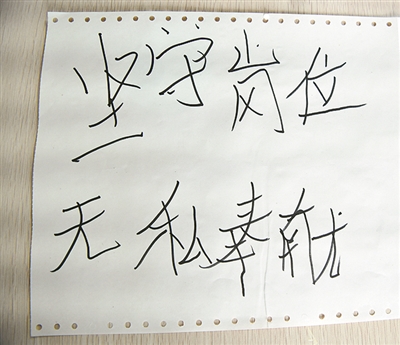 坚守岗位
无私奉献